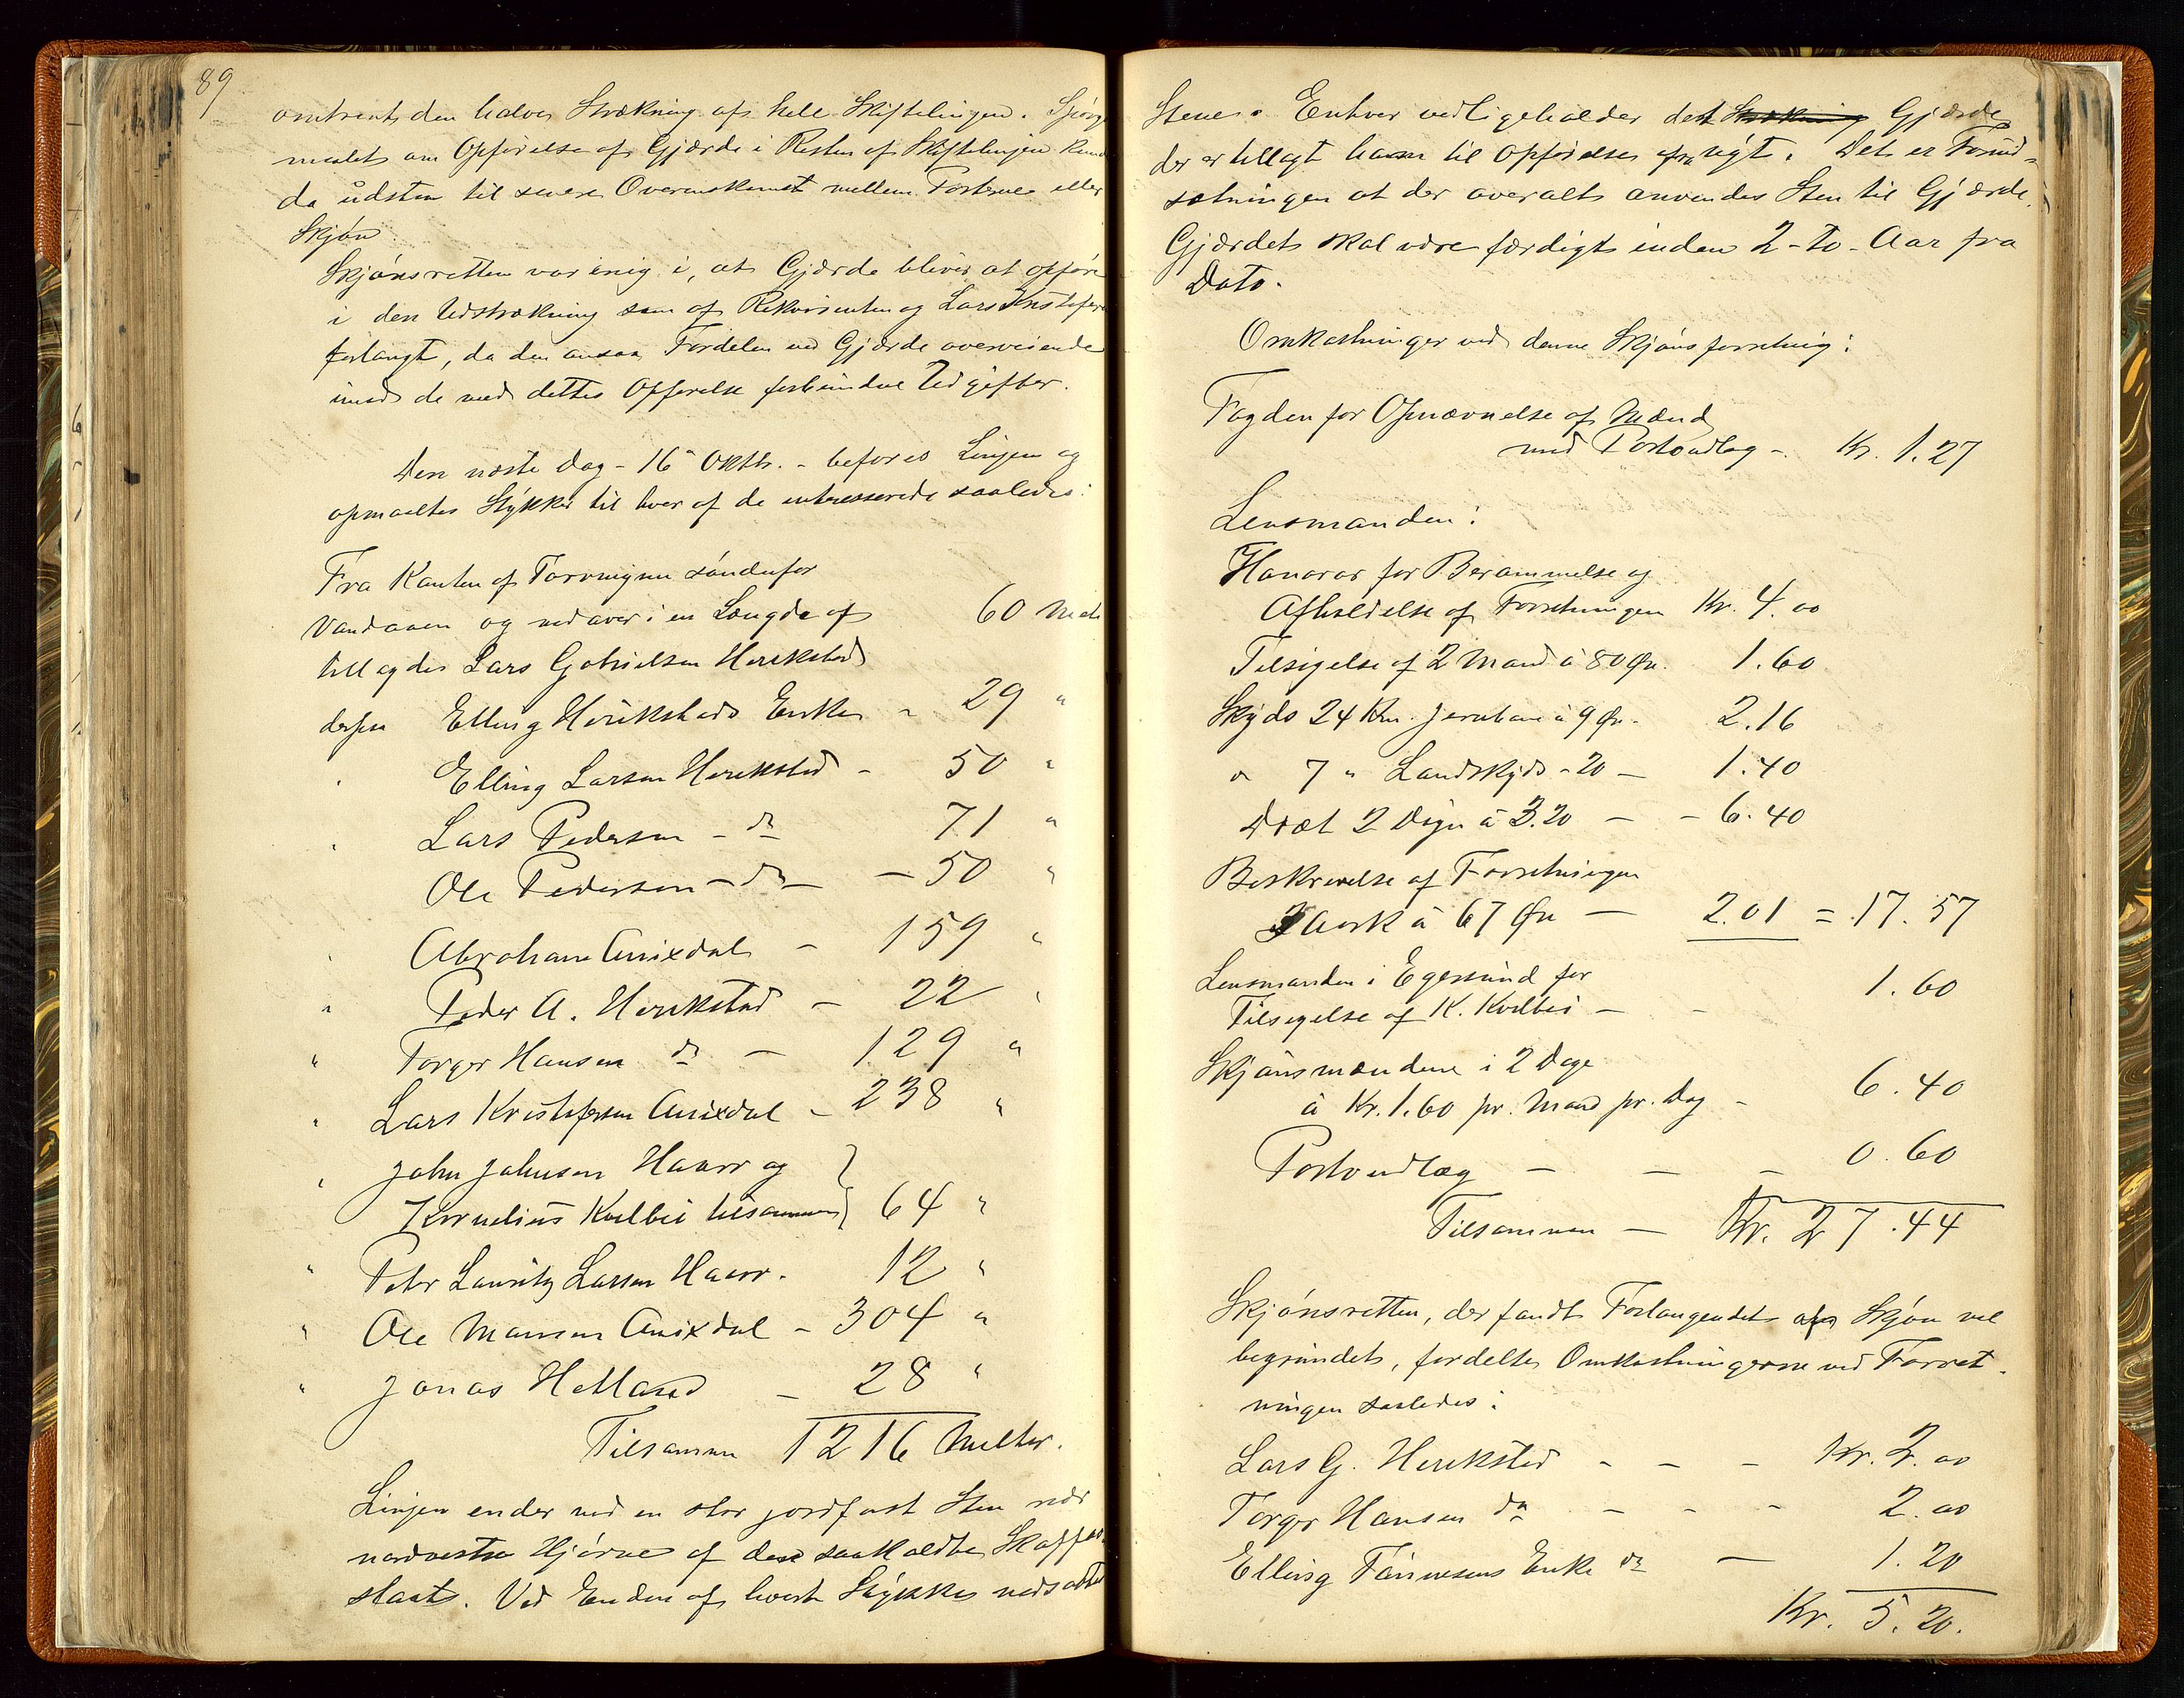 89
omtrent den halve Strækning af hele Skiftelinjen. Spörgs
maalet om Opförelse af Gjærde i Resten af Skiftelinjen kunde
da udstaa til senere Overenskomst mellem Parterne eller
Skjön
Skjönsretten var enig i, at Gjærde bliver at opföre
i den Udstrækning som af Rekvirenten og Lars Kristofersen
forlangt, da den ansaa Fordelen ved Gjærde overveiende
imod de med dettes Opförelse forbundne Udgifter.
Den næste Dag - 16 Oktbr. - beforés Linjen og
opmaaltes Stykker til hver af de interesserede saaledes:
Fra Kanten af Torvmyren söndenfor
Vandaaen og nedover i en Længde af 60 Met
tillagdes Lars Gabrielsen Herikstad
derfra Elling Herikstads Enke - 29 "
" Elling Larsen Herikstad - 50 "
" Lars Pedersen - do 71 "
Ole Pedersen - do - - 50 "
" Abraham Aniksdal - 159 "
" Peder A. Herikstad - 22 "
" Torger Hansen do - 129 "
" Lars Kristofersen Anixdal - 238 "
" John Johnsen Haarr og }
Kornelius Kvelbei tilsammen } 64 "
" Peter Lauritz Larsen Haarr. 12 "
" Ole Monsen Anixdal - 304 "
" Jonas Helland - 28 "
Tilsammen 1216 Metter.
Linjen ender ved en stor jordfast Sten nær
nordvestre Hjörne af den saakaldte
slaat. Ved Enden af hvert Stykke nedsattes
Stene. Enhver vedligeholder det Strækning Gjærde
der er tillagt ham til Opförelse frarigt. Det er Forud=
sætningen at der overalt anvendes Sten til Gjærde.
Gjærdet skal være færdigt inden 2 - to - Aar fra
Dato.
Omkostninger ved denne Skjönsforretning:
Fogden for Opnævnelse af Mænd
med Portoudlæg - Kr. 1.27
Lensmanden:
Honorar for Berammelse og
Afholdelse af Forretningen Kr. 4.00
Tilsigelse af 2 Mand á 80 Øre. 1.60
Skyds 24 Km. Jernbane á 9 Ør. 2.16
" 7 " Landskyds - 20 - 1.40
Diæt 2 Dage á 3.20 - - 6.40
Beskrivelse af Forretningen
3 Aark á 67 Øre - 2.01 = 17.57
Lensmanden i Egersund for
Tilsigelse af K. Kvelbei - - 1.60
Skjönsmændene i 2 Dage
á Kr. 1.60 pr. Mand pr. Dag - 6.40
Portoudlæg - - - 0.60
Tilsammen - Kr. 27.44
Skjönsretten, der fandt Forlangendet af Skjön vel
begrundet, fordelte Omkostningerne ved Forret-
ningen saaledes:
Lars G. Herikstad - - - Kr. 2.00
Torger Hansen do - - - 2.00
Elling Tönnesens Enke do - 1.20
Kr. 5.20.